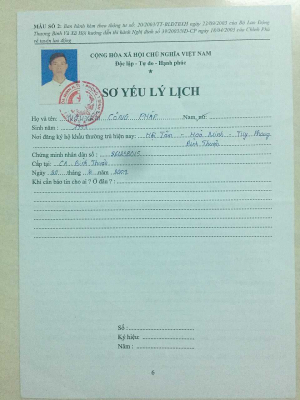 MẪU SỐ 2: Ban hành kèm theo thông tư số: 20/2003/TT-BLĐTBXH ngày 22/09/2003 của Bộ Lao Động
Thương Binh Và Xã Hội hướng dẫn thi hành Nghị định số 39/2003/NĐ-CP ngày 18/04/2003 của Chính Phủ
về tuyển lao động
CỘNG HÒA XÃ HỘI CHỦ NGHĨA VIỆT NAM
Độc lập - Tự do - Hạnh phúc
SƠ YẾU LÝ LỊCH
Họ và tên: NGUYỄN CÔNG Nam, nữ:
Sinh năm:
Nơi đăng ký hộ khẩu thường trú hiện nay: - Hoà Minh - Tuy Phong
Bình Thuận
Chứng minh nhân dân số:
Cấp tại: CA Bình Thuận
Ngày tháng năm
Khi cần báo tin cho ai ? Ở đâu ? :
Số :
Ký hiệu :
Năm :
6